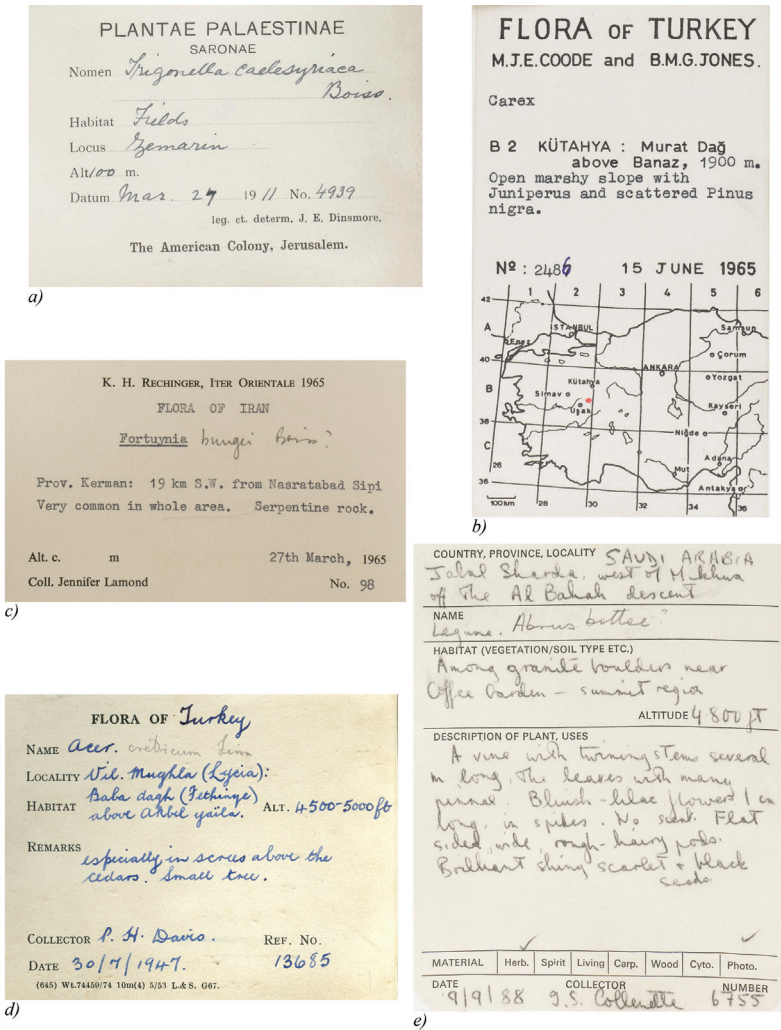 PLANTAE PALAESTINAE
SARONAE
Nomen Trigonella caelesyriaca
Boiss.
Habitat Fields
Locus Zemarin
Alt 100 m.
Datum Mar. 27 1911 No. 4939
leg. et. determ. J. E. Dinsmore.
The American Colony, Jerusalem.
a)
FLORA OF TURKEY
M.J.E.COODE and B.M.G.JONES.
Carex
B 2 KÜTAHYA : Murat Dağ
above Banaz, 1900 m.
Open marshy slope with
Juniperus and scattered Pinus
nigra.
Nº : 2486 15 JUNE 1965
1 2 3 4 5 6
42
A
İSTANBUL
Samsun
Enez
Çorum
40
ANKARA
Yozgat
Kütahya
B
Simav
Uşak
Kayseri
38
Niğde
C
Adana
26
Mut
36
Antakya
100km 28 30 32 34 36
b)
K. H. RECHINGER, ITER ORIENTALE 1965
FLORA OF IRAN
Fortuynia bungei Boiss?
Prov. Kerman: 19 km S.W. from Nasratabad Sipi
Very common in whole area. Serpentine rock.
Alt. c. m 27th March, 1965
Coll. Jennifer Lamond No. 98
c)
FLORA OF Turkey
NAME Acer. creticum Linn
LOCALITY Vil. Mughla (Lycia):
HABITAT Baba dagh (Fethinye)
above Akbel yaila. ALT. 4500-5000 ft
REMARKS especially in screes above the
cedars. Small tree.
COLLECTOR P. H. Davis. REF. NO.
DATE 30/7/1947. 13685
(645) Wt.74459/74 10m(4) 5/53 L.& S. G67.
d)
COUNTRY, PROVINCE, LOCALITY SAUDI ARABIA
Jabal Sharda, west of Mikhwa
off the Al Bahah descent
NAME
Legume. Abrus bottae?
HABITAT (VEGETATION/SOIL TYPE ETC.)
Among granite boulders near
Coffee Garden – summit region
ALTITUDE 4·800 ft
DESCRIPTION OF PLANT, USES
A vine with turning stems several
m long. The leaves with many
pinnae. Bluish-lilac flowers 1 cm
long, in spikes. No scent. Flat
sided, wide, rough-hairy pods.
Brilliant shiny scarlet & black
seeds.
MATERIAL Herb. Spirit Living Carp. Wood Cyto. Photo.
DATE COLLECTOR NUMBER
9/9/88 I.S. Collenette 6755
e)